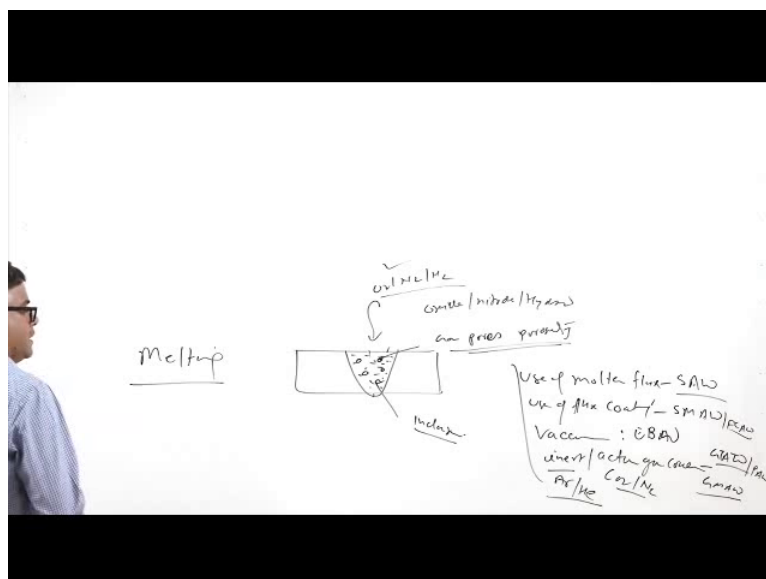 O2/N2/H2
oxide/nitride/Hydro
gas pores porosity
Melting
Inclusion
Use of molten flux - SAW
use of flux coatg - SMAW/FCAW
Vacuum : EBAW
inert/active gas cover - GTAW/PAW
Ar/He CO2/N2 GMAW